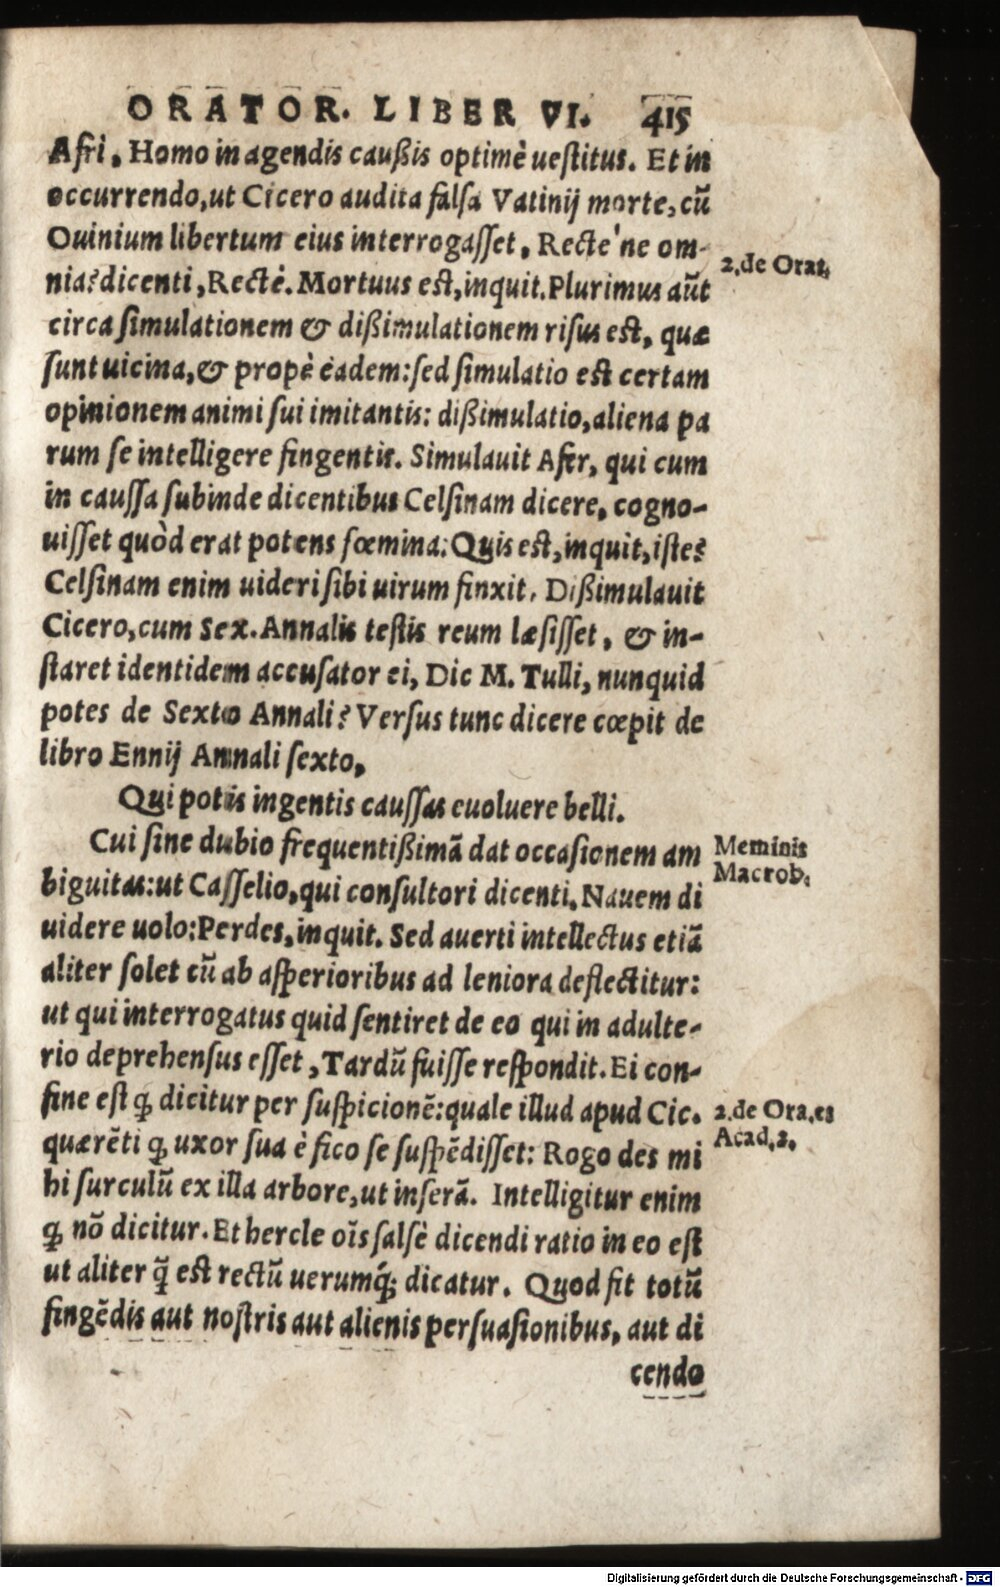 ORATOR. LIBER VI. 415
Afri, Homo in agendis caußis optimè uestitus. Et in
occurrendo, ut Cicero audita falsa Vatinij morte, cũ
Ouinium libertum eius interrogasset, Recte'ne om-
nia? dicenti, Rectè. Mortuus est, inquit. Plurimus aũt
circa simulationem & dißimulationem risus est, quæ
sunt uicina, & propè eadem: sed simulatio est certam
opinionem animi sui imitantis: dißimulatio, aliena pa
rum se intelligere fingentis. Simulauit Afer, qui cum
in caussa subinde dicentibus Celsinam dicere, cogno-
uisset quòd erat potens fœmina: Quis est, inquit, iste?
Celsinam enim uideri sibi uirum finxit. Dißimulauit
Cicero, cum Sex. Annalis testis reum læsisset, & in-
staret identidem accusator ei, Dic M. Tulli, nunquid
potes de Sexto Annali? Versus tunc dicere cœpit de
libro Ennij Annali sexto,
Qui potis ingentis caussas euoluere belli.
Cui sine dubio frequentißimã dat occasionem am
biguitas: ut Casselio, qui consultori dicenti, Nauem di
uidere uolo: Perdes, inquit. Sed auerti intellectus etiã
aliter solet cũ ab asperioribus ad leniora deflectitur:
ut qui interrogatus quid sentiret de eo qui in adulte-
rio deprehensus esset, Tardũ fuisse respondit. Ei con-
fine est ꝙ dicitur per suspicionẽ: quale illud apud Cic.
quærẽti ꝙ uxor sua è fico se suspẽdisset: Rogo des mi
hi surculũ ex illa arbore, ut inserã. Intelligitur enim
ꝙ nõ dicitur. Et hercle oĩs salsè dicendi ratio in eo est
ut aliter q̃ est rectũ uerumq́; dicatur. Quod fit totũ
fingẽdis aut nostris aut alienis persuasionibus, aut di
cendo
2. de Orat.
Meminis
Macrob.
2. de Ora. es
Acad. 2.
Digitalisierung gefördert durch die Deutsche Forschungsgemeinschaft - DFG